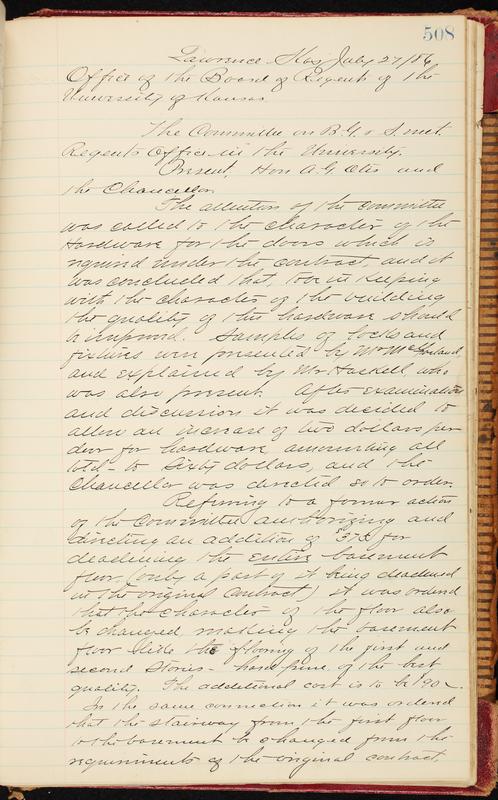 508
Lawrence Kas July 27/86
Office of the Board of Regents of the
University of Kansas
The Committee on B. G. & S. met.
Regents Office in the University.
Present, Hon A. G. Otis and
the Chancellor.
The attention of the committee
was called to the character of the
Hardware for the doors which is
required under the contract, and it
was concluded that, to be in keeping
with the character of the building
the quality of this hardware should
be improved. Samples of locks and
fixtures were presented by Mr
and explained by Mr Haskell who
was also present. After examination
and discussion it was decided to
allow an increase of two dollars per
door for hardware amounting all
told to Sixty dollars, and the
Chancellor was directed so to order.
Referring to a former action
of the Committee authorizing and
directing an addition of for
deadening the entire basement
floor, (only a part of it being deadened
in the original Contract) it was ordered
that the character of the floor also
be changed, making the basement
floor like the flooring of the first and
second stories - hard pine of the best
quality. The additional cost is to be
In the same connection it was ordered
that the stairway from the first floor
to the basement be changed from the
requirements of the original contract,